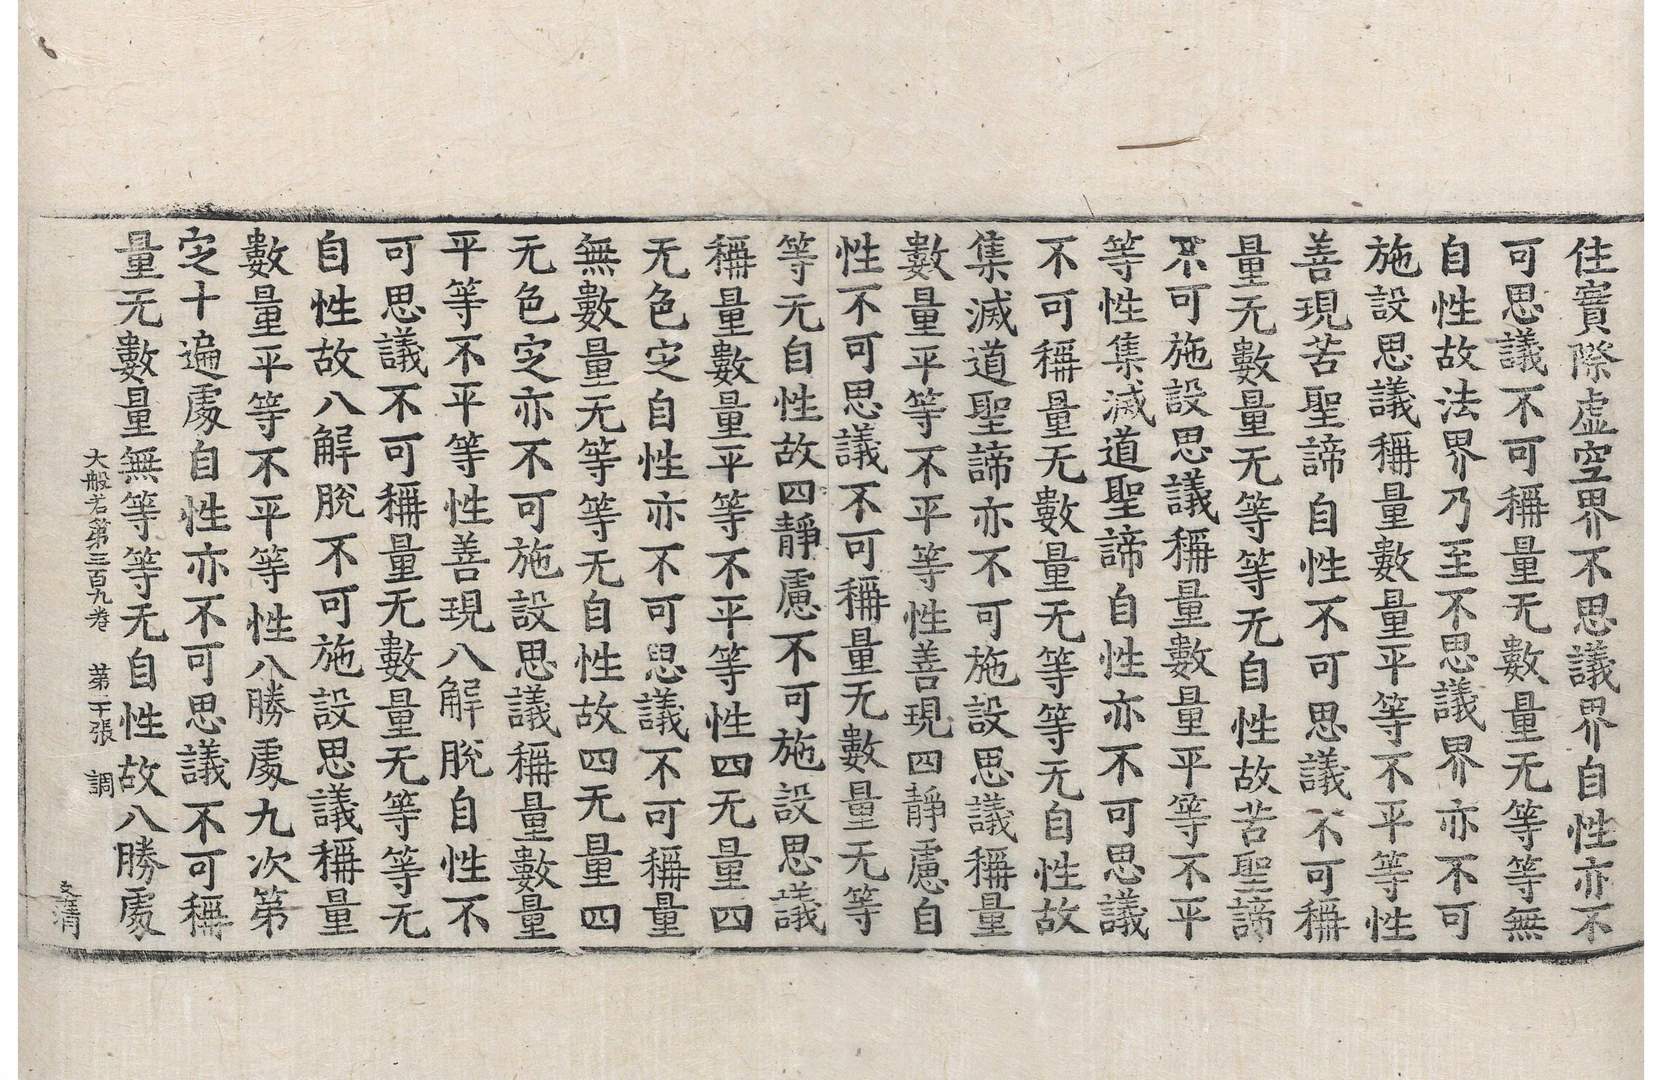 住實際虛空界不思議界自性亦不
可思議不可稱量无數量无等等無
自性故法界乃至不思議界亦不可
施設思議稱量數量平等不平等性
善現苦聖諦自性不可思議不可稱
量无數量无等等无自性故苦聖諦
不可施設思議稱量數量平等不平
等性集滅道聖諦自性亦不可思議
不可稱量无數量无等等无自性故
集滅道聖諦亦不可施設思議稱量
數量平等不平等性善現四靜慮自
性不可思議不可稱量无數量无等
等无自性故四靜慮不可施設思議
稱量數量平等不平等性四无量四
无色定自性亦不可思議不可稱量
無數量无等等无自性故四无量四
无色定亦不可施設思議稱量數量
平等不平等性善現八解脫自性不
可思議不可稱量无數量无等等无
自性故八解脫不可施設思議稱量
數量平等不平等性八勝處九次第
定十遍處自性亦不可思議不可稱
量无數量無等等无自性故八勝處
大般若第三百九卷 第丁張 調